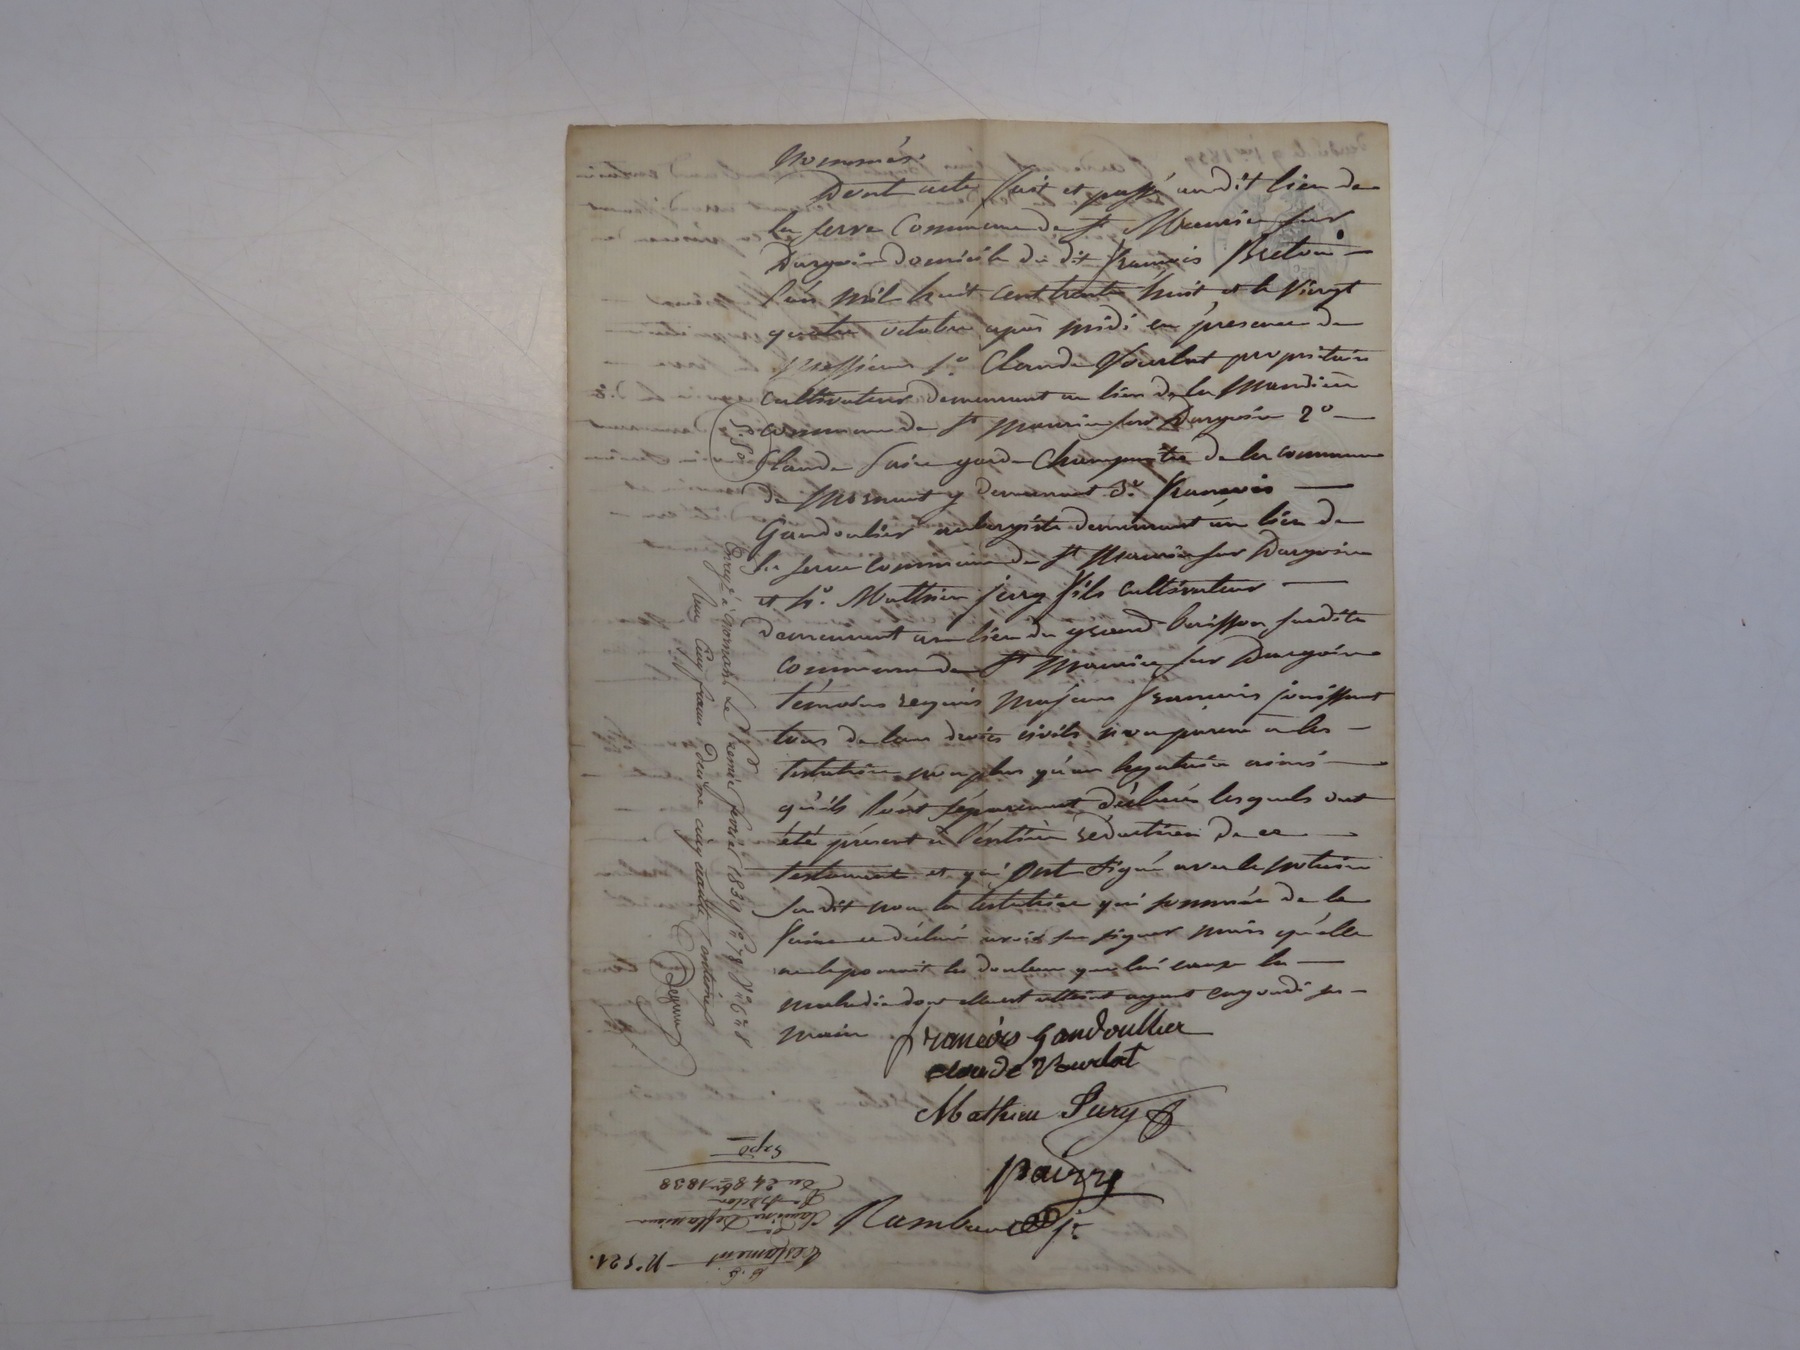 nommés.
Dont acte fait et passé au dit lieu de
la ferve Commune de St Maurice sur
Dargoire domicile du dit François Breton
l'an mil huit cent trente huit et le vingt
quatre octobre après midi en présence de
1o. Claude Bourlat propriétaire
cultivateur demeurant au lieu de la
commune de St maurice sur Dargoire 2o
Claude faire garde Champêtre de la commune
de Mornant y demeurant 3o. François
Gandoulier aubergiste demeurant au lieu de
la ferve commune de St Maurice sur Dargoire
et 4o. Mathieu jury fils cultivateur
demeurant au lieu du grand buisson susdite
commune de St Maurice sur Dargoire
témoins requis majeurs français jouissant
tous de leurs droits civils non parens à la
testatrice non plus qu'au légataire ainsi
qu'ils l'ont séparément déclaré lesquels ont
été présent à l'entière rédaction de ce
testament et qui ont signé avec le notaire
susdit non la testatrice qui sommée de le
faire a déclaré avoir su signer mais qu'elle
ne le pouvoit la douleur que lui cause la
maladie dont elle est atteint ayant engourdi sa
main
François Gandoullier
Claude Bourlat
Mathieu Jury
Rambaud
Enregé à Mornant le Premier février 1839 fo 78
Reçu cinq francs décime cinquante centimes
Testament No 521.
Claudine
Breton
Du 24 8bre 1838
Expó